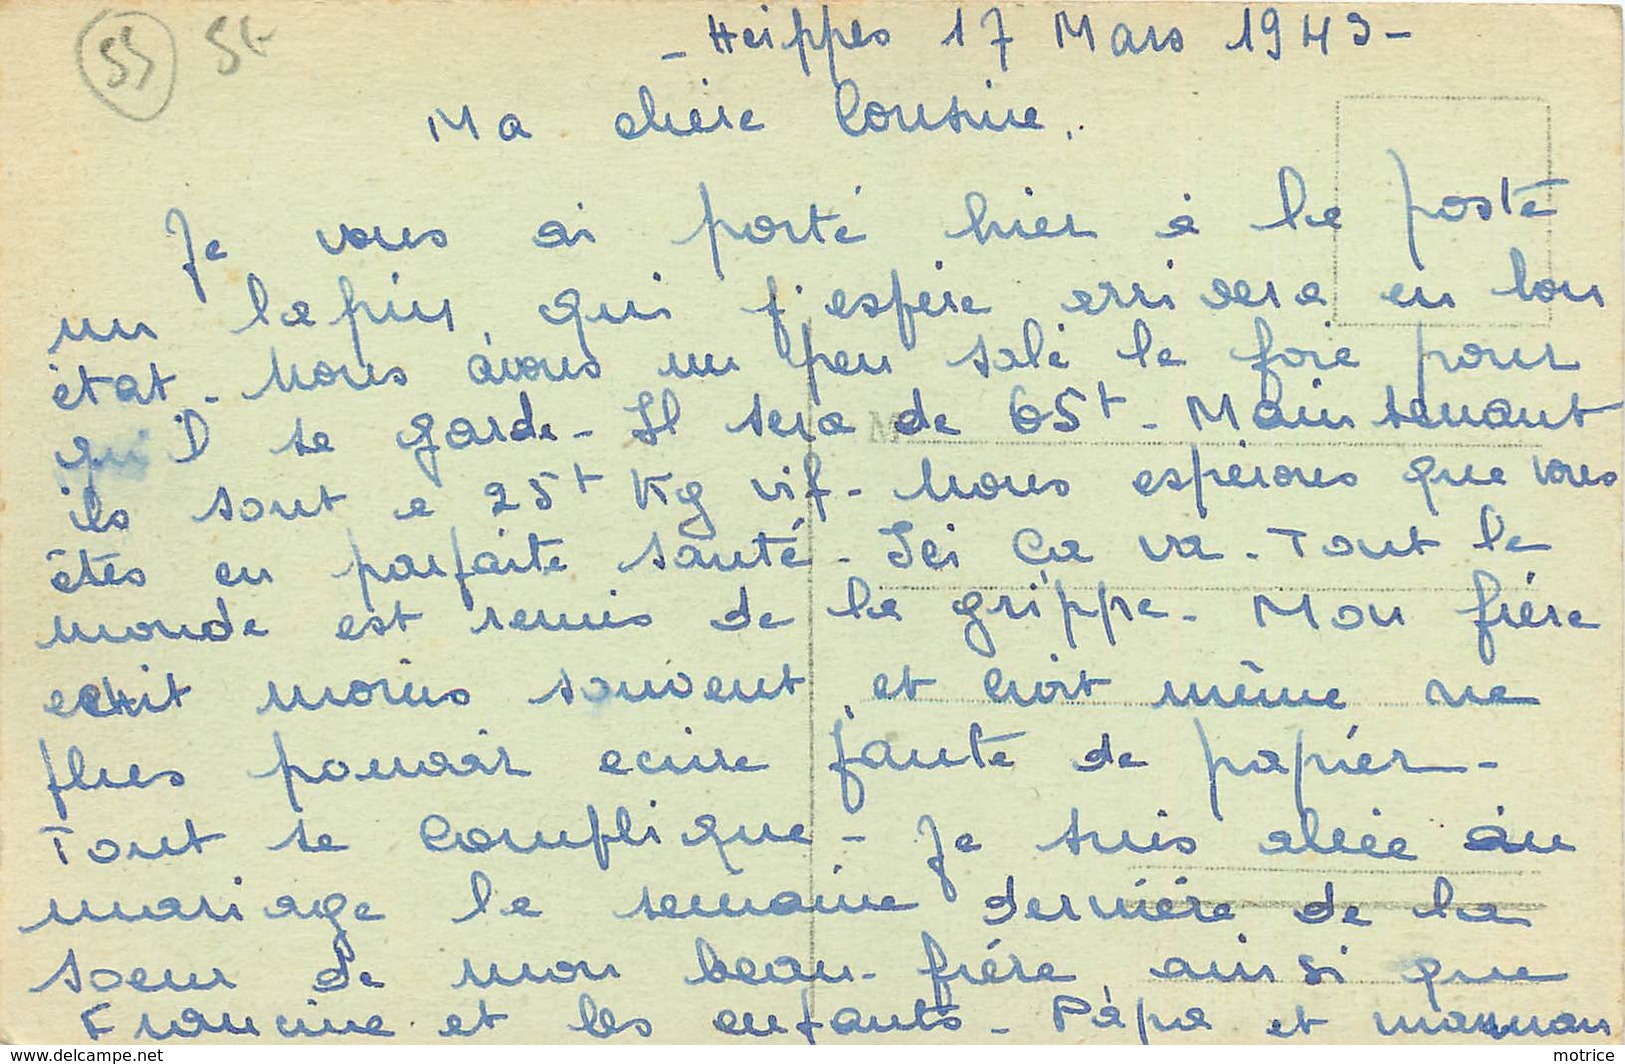 55 5t
- Heippes 17 Mars 1943 -
Ma chère Cousine,
Je vous ai porté hier à la poste
un lapin qui j'espère arrivera en bon
état. Nous avons un peu salé le foie pour
qu'il se garde - Il sera de 65t - Maintenant
ils sont a 25t Kg vif - Nous espérons que vous
êtes en parfaite santé - Ici ça va - Tout le
monde est remis de la grippe - Mon frère
ecrit moins souvent et croit même ne
plus pouvoir ecrire faute de papier -
Tout se complique - Je suis allée au
mariage la semaine dernière de la
soeur de mon beau-frère ainsi que
Francine et les enfants - Papa et maman
motrice